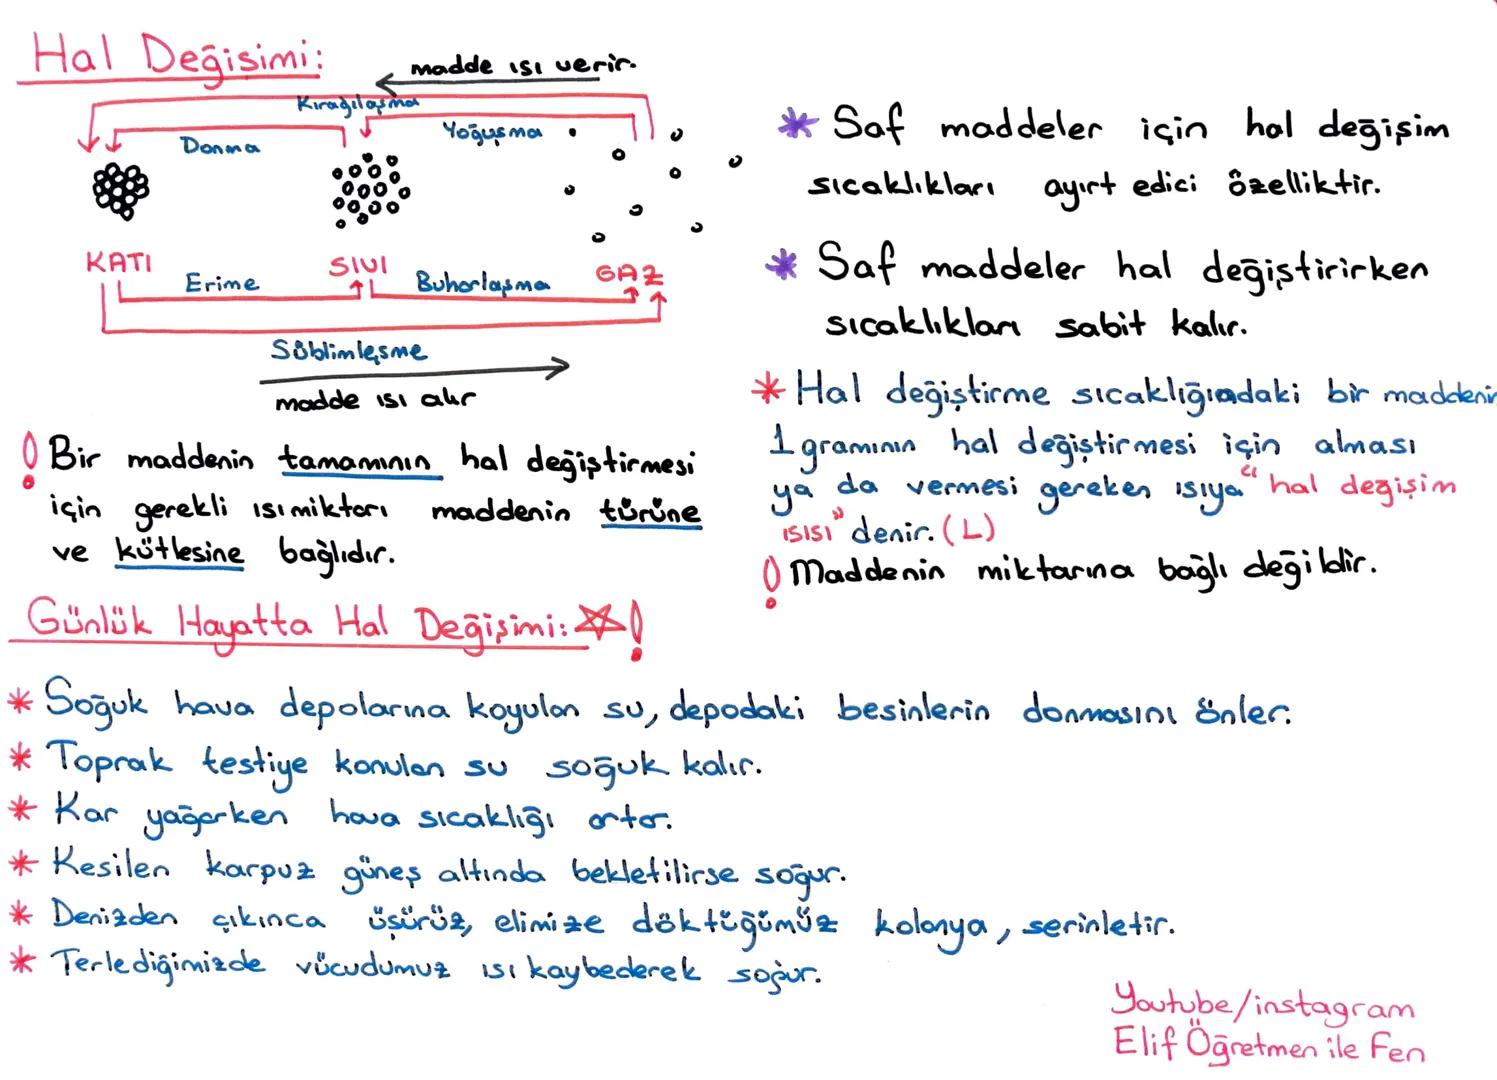 Hal Değişimi:
madde ısı verir.
Kırağılaşma
Donma
Yoğuşma
KATI
SIVI
GAZ
Erime
Buharlaşma
Süblimleşme
madde ısı alır
! Bir maddenin tamamının hal değiştirmesi
için gerekli ısı miktarı maddenin türüne
ve kütlesine bağlıdır.
* Saf maddeler için hal değişim
sıcaklıkları ayırt edici özelliktir.
* Saf maddeler hal değiştirirken
sıcaklıkları sabit kalır.
* Hal değiştirme sıcaklığındaki bir maddenin
1 gramının hal değiştirmesi için alması
ya da vermesi gereken ısıya "hal değişim
ısısı" denir. (L)
! Maddenin miktarına bağlı değildir.
Günlük Hayatta Hal Değişimi: ☆!
* Soğuk hava depolarına koyulan su, depodaki besinlerin donmasını önler.
* Toprak testiye konulan su soğuk kalır.
* Kar yağarken hava sıcaklığı artar.
* Kesilen karpuz güneş altında bekletilirse soğur.
* Denizden çıkınca üşürüz, elimize döktüğümüz kolonya, serinletir.
* Terlediğimizde vücudumuz ısı kaybederek soğur.
Youtube/instagram
Elif Öğretmen ile Fen